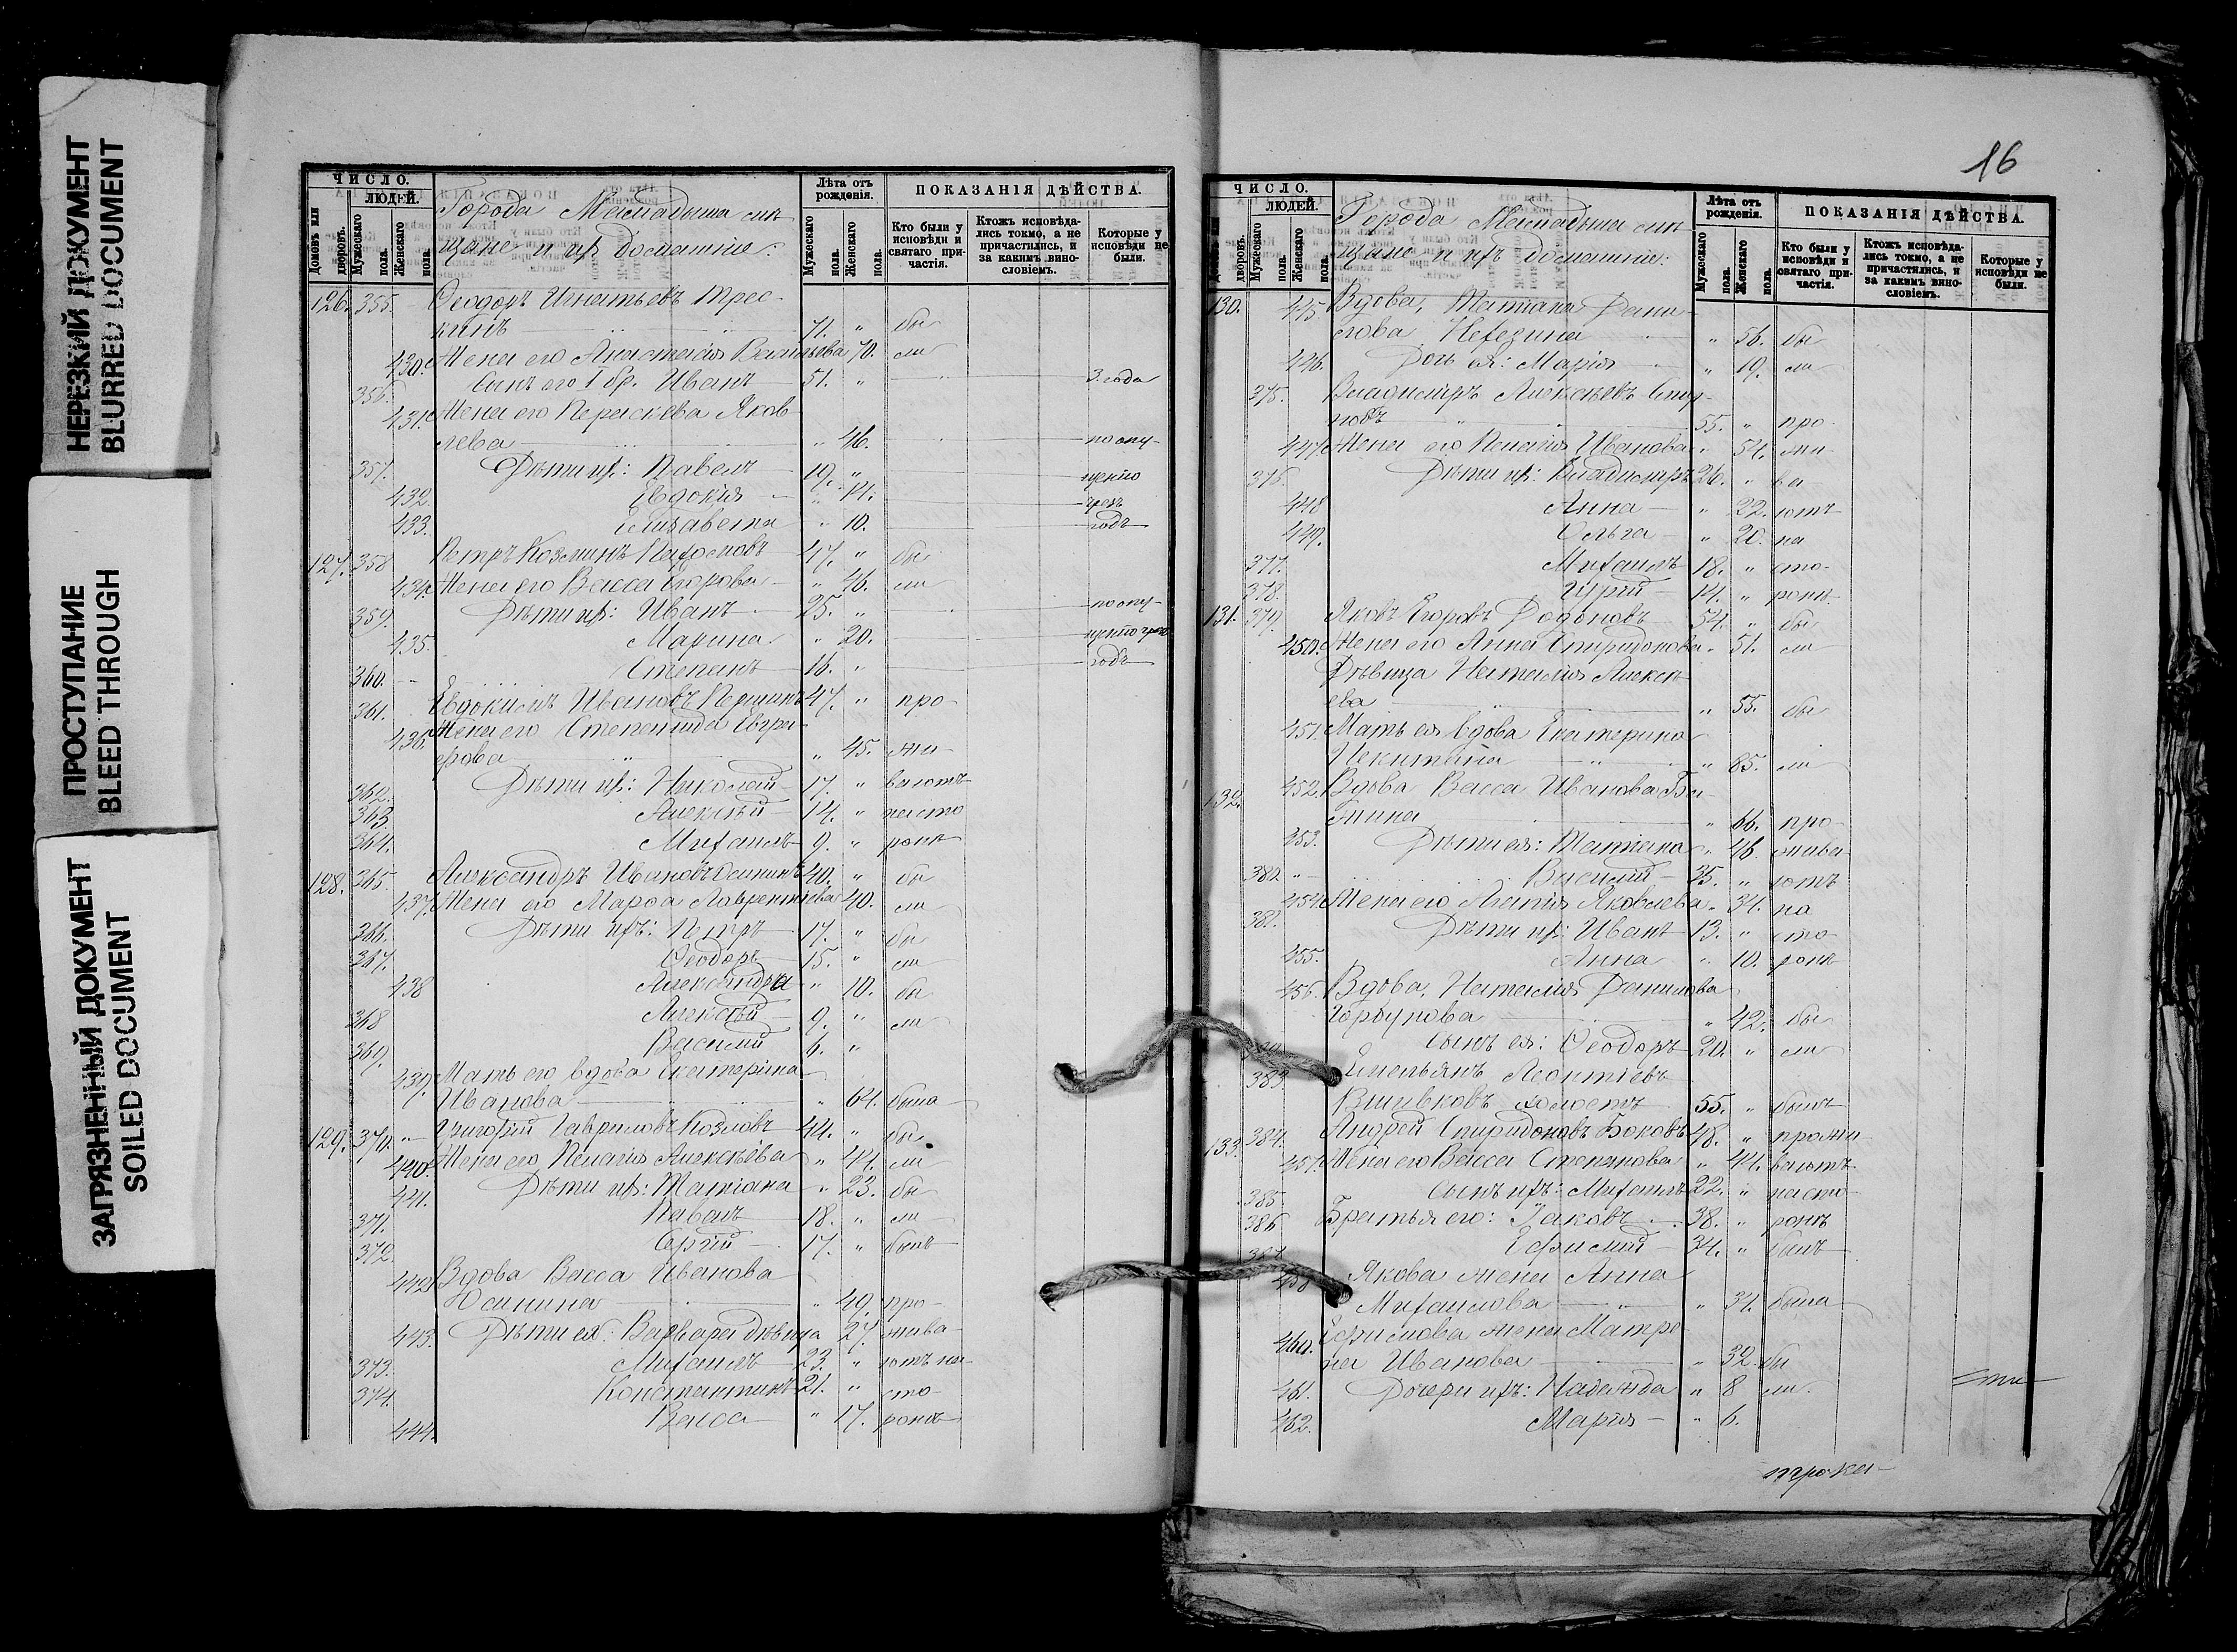 НЕРЕЗКИЙ ДОКУМЕНТ
BLURRED DOCUMENT
ПРОСТУПАНИЕ
BLEED THROUGH
ЗАГРЯЗНЕННЫЙ ДОКУМЕНТ
SOILED DOCUMENT
ЧИСЛО.
ЛЮДЕЙ.
Домовъ или дворовъ.
Мужескаго пола.
Женскаго пола.
Города Мамадыша мѣ-
щане и ихъ домашніе:
Лѣта отъ рожденія.
Мужескаго пола.
Женскаго пола.
ПОКАЗАНІЯ ДѢЙСТВА.
Кто были у исповѣди и святаго при-частія.
Ктожъ исповѣда-лись токмо, а не причастились, и за какимъ вино-словіемъ.
Которые у исповѣди не были.
126. 355. Ѳеодоръ Игнатьевъ
кинъ 71. " бы
430. Жена его Анастасія Васильева 70. ли
356. Сынъ его 1 бр. Иванъ 51. " 3 года
431. Жена его Параскева Яков-
лева " 46. по опу-
357. Дѣти ихъ: Павелъ 19. " щенію
432. Евдокія " 14.
433. Елизавета " 10. годъ
127. 358 Петръ Козминъ 47. " бы
434. Жена его Васса Егорова " 46. ли
359. Дѣти ихъ: Иванъ 25. " по опу-
435. Марина " 20. щенію
360. Степанъ 16. " годъ
361. Евдокимъ Ивановъ 47. " про
436. Жена его Степанида Евгра-
фова " 45. жи-
362. Дѣти ихъ: Николай 17. " ваютъ
363. Алексѣй 14. " на сто
364. Михаилъ 9. " ронѣ
128. 365. Александръ Ивановъ Осининъ 40. " бы
437. Жена его Марѳа Лаврентіева 40. ли
366. Дѣти ихъ: Петръ 17. " бы
367. Ѳеодоръ 15. " ли
438 Александра " 10. бы
368 Алексѣй 9. " ли
369. Василій 6. "
439. Мать его вдова Екатерина
Иванова " 64. была
129. 370. " Григорій Гавриловъ Козловъ 44. " бы
440. Жена его Пелагія Алексѣева " 44. ли
441. Дѣти ихъ: Татіана " 23. бы
371. Павелъ 18. " ли
372. Сергій 17. " былъ
442. Вдова Васса Иванова
Осинина " 49. про-
443. Дѣти ея: Варвара дѣвица 27. жива-
373. Михаилъ 23. " ютъ на
374. Константинъ 21. " сто-
444. Васса " 17. ронѣ
16
ЧИСЛО.
ЛЮДЕЙ.
дворовъ.
Мужескаго пола.
Женскаго пола.
Города Мамадыша мѣ-
щане и ихъ домашніе:
Лѣта отъ рожденія.
Мужескаго пола.
Женскаго пола.
ПОКАЗАНІЯ ДѢЙСТВА.
Кто были у исповѣди и святаго при-частія.
Ктожъ исповѣда-лись токмо, а не причастились, и за какимъ вино-словіемъ.
Которые у исповѣди не были.
130. 445. Вдова, Татіана Дани-
лова " 56. бы
446. Дочь ея: Марія " 19. ли
375. Владиміръ Алексѣевъ Смир-
новъ 55. " про
447. Жена его Пелагія Иванова " 54. жи-
376. Дѣти ихъ: Владиміръ 26. " ва
448 Анна " 22. ютъ
449. Ольга " 20. на
377. Михаилъ 18. " сто-
378. Гурій 14. " ронѣ
131. 379. Яковъ Егоровъ Додоновъ 54. " бы
450. Жена его Анна Спиридонова " 51. ли
Дѣвица Наталія Алексѣ-
ева " 55. бы
451. Мать ея вдова Екатерина
Никитина " 85. ли
132. 452. Вдова Васса Иванова Ба-
" 66. про-
453. Дѣти ея: Татіана " 46. жива-
380. " Василій 35. " ютъ
454. Жена его Агапія Яковлева " 34. на
381. Дѣти ихъ: Иванъ 13. " сто-
455. Анна " 10. ронѣ
456. Вдова, Наталія Данилова
Горбунова " 42. бы
Сынъ ея: Ѳеодоръ 20. " ли
383. Емельянъ Леонтіевъ
холостъ 55. " былъ
133. 384. Андрей Спиридоновъ Боковъ 48. " прожи-
457. Жена его Васса Степанова " 44. ваютъ
385. Сынъ ихъ: Михаилъ 22. " на сто-
386 Братья его: Іаковъ 38. " ронѣ
387. Ефимій 34. " былъ
458 Якова жена Анна
Михаилова " 34. была
460. Ефимова жена Матро-
на Иванова " 32. бы
461. Дочери ихъ: Надежда " 8 ли.
462. Марія " 6.